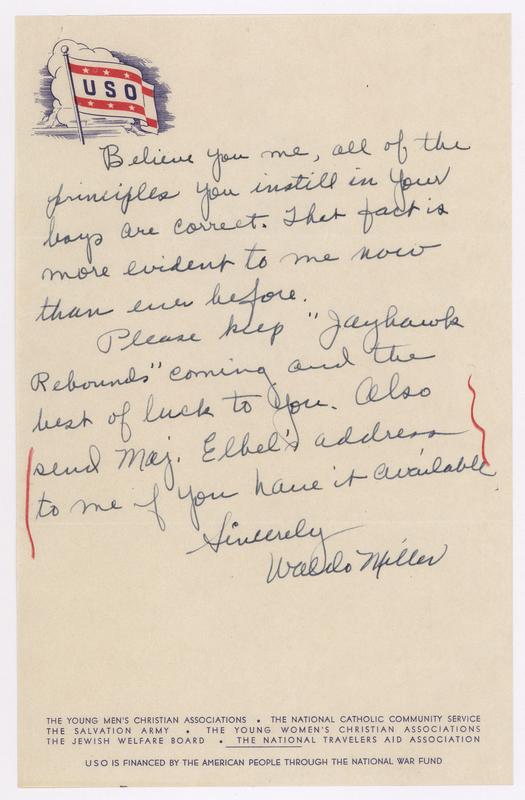 USO
Believe you me, all of the
principles you instill in your
boys are correct. That fact is
more evident to me now
than ever before.
Please keep "Jayhawk
Rebounds" coming and the
best of luck to you. Also
send Maj. Elbel's address
to me if you have it available.
Sincerely
Waldo Miller
THE YOUNG MEN'S CHRISTIAN ASSOCIATIONS • THE NATIONAL CATHOLIC COMMUNITY SERVICE
THE SALVATION ARMY • THE YOUNG WOMEN'S CHRISTIAN ASSOCIATIONS
THE JEWISH WELFARE BOARD • THE NATIONAL TRAVELERS AID ASSOCIATION
USO IS FINANCED BY THE AMERICAN PEOPLE THROUGH THE NATIONAL WAR FUND